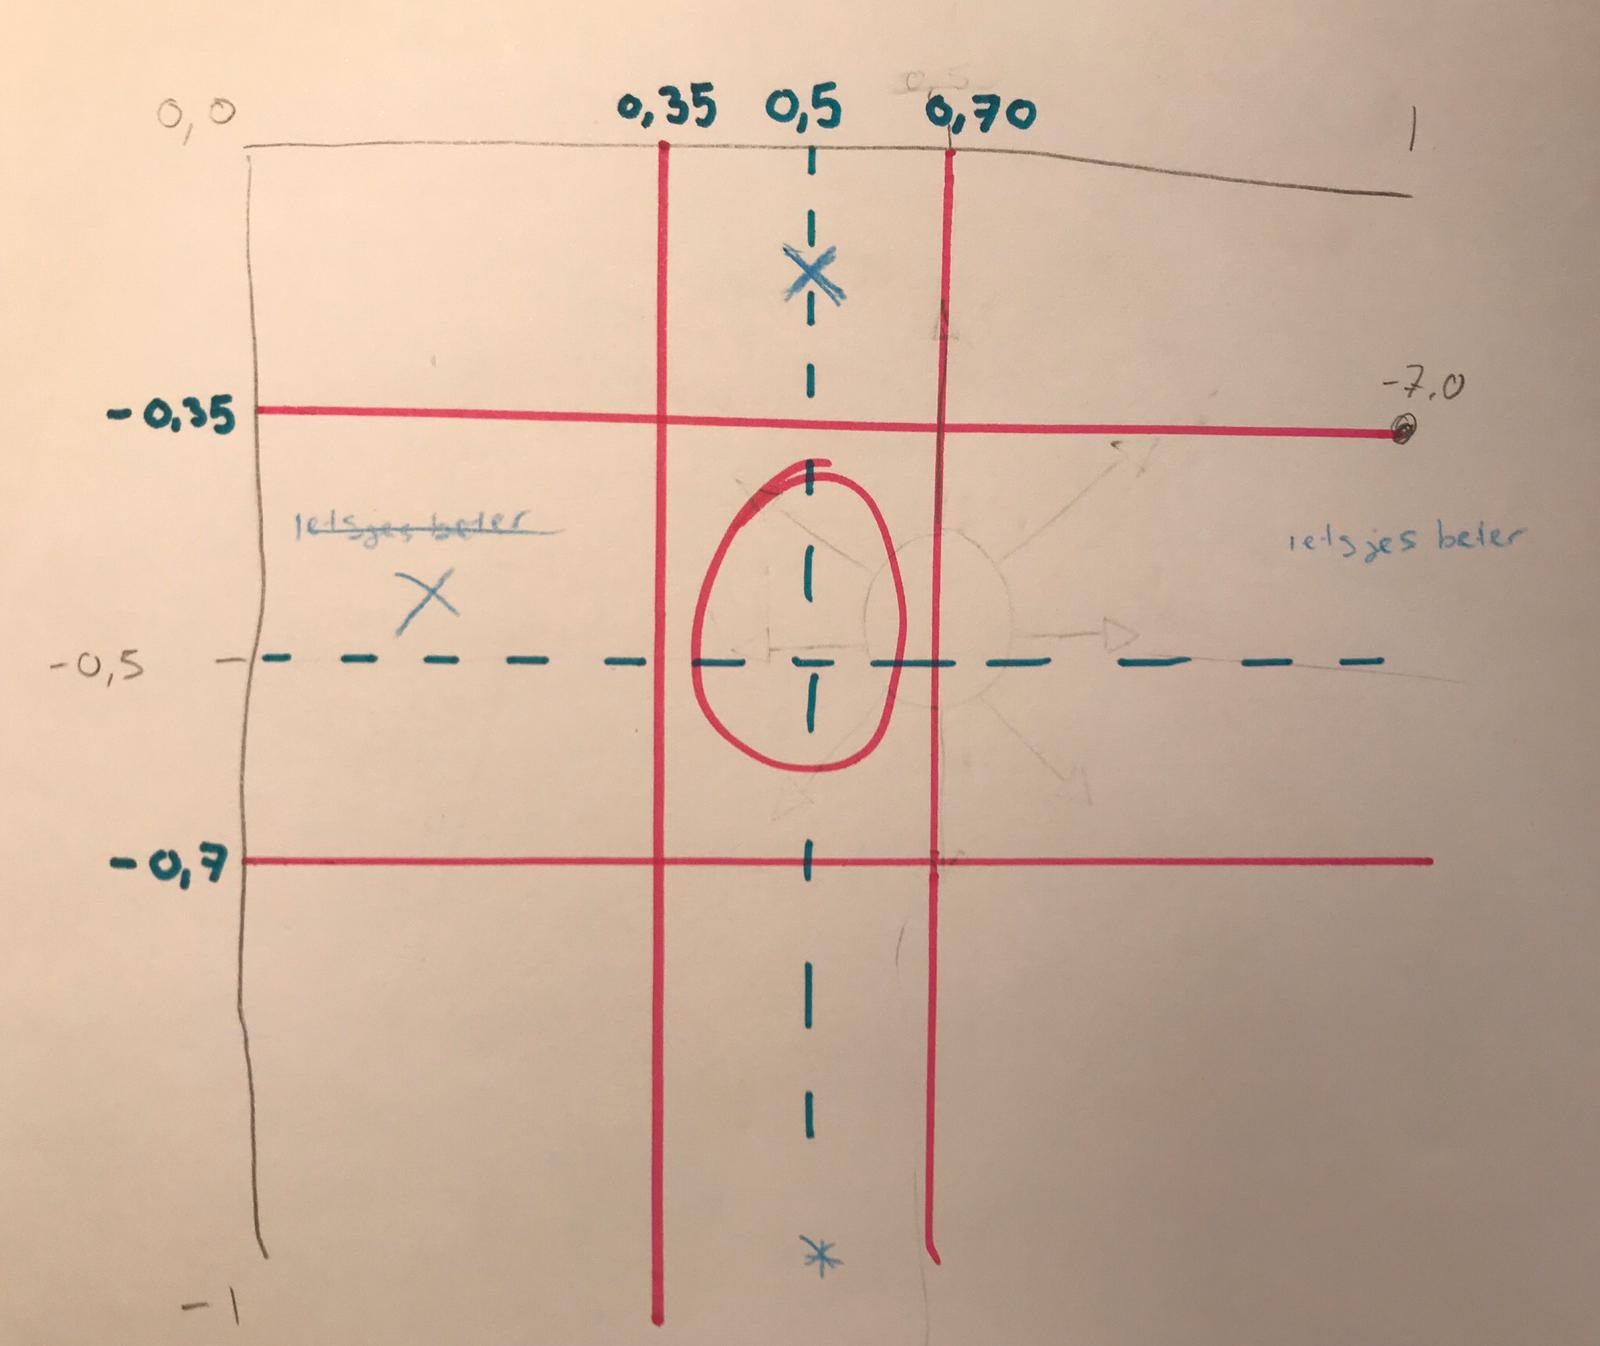 0,5
0,0
0,35
0,5
0,70
1
-7.0
-0,35
ietsjes beter
ietsjes beter
-0,5
-0,7
-1